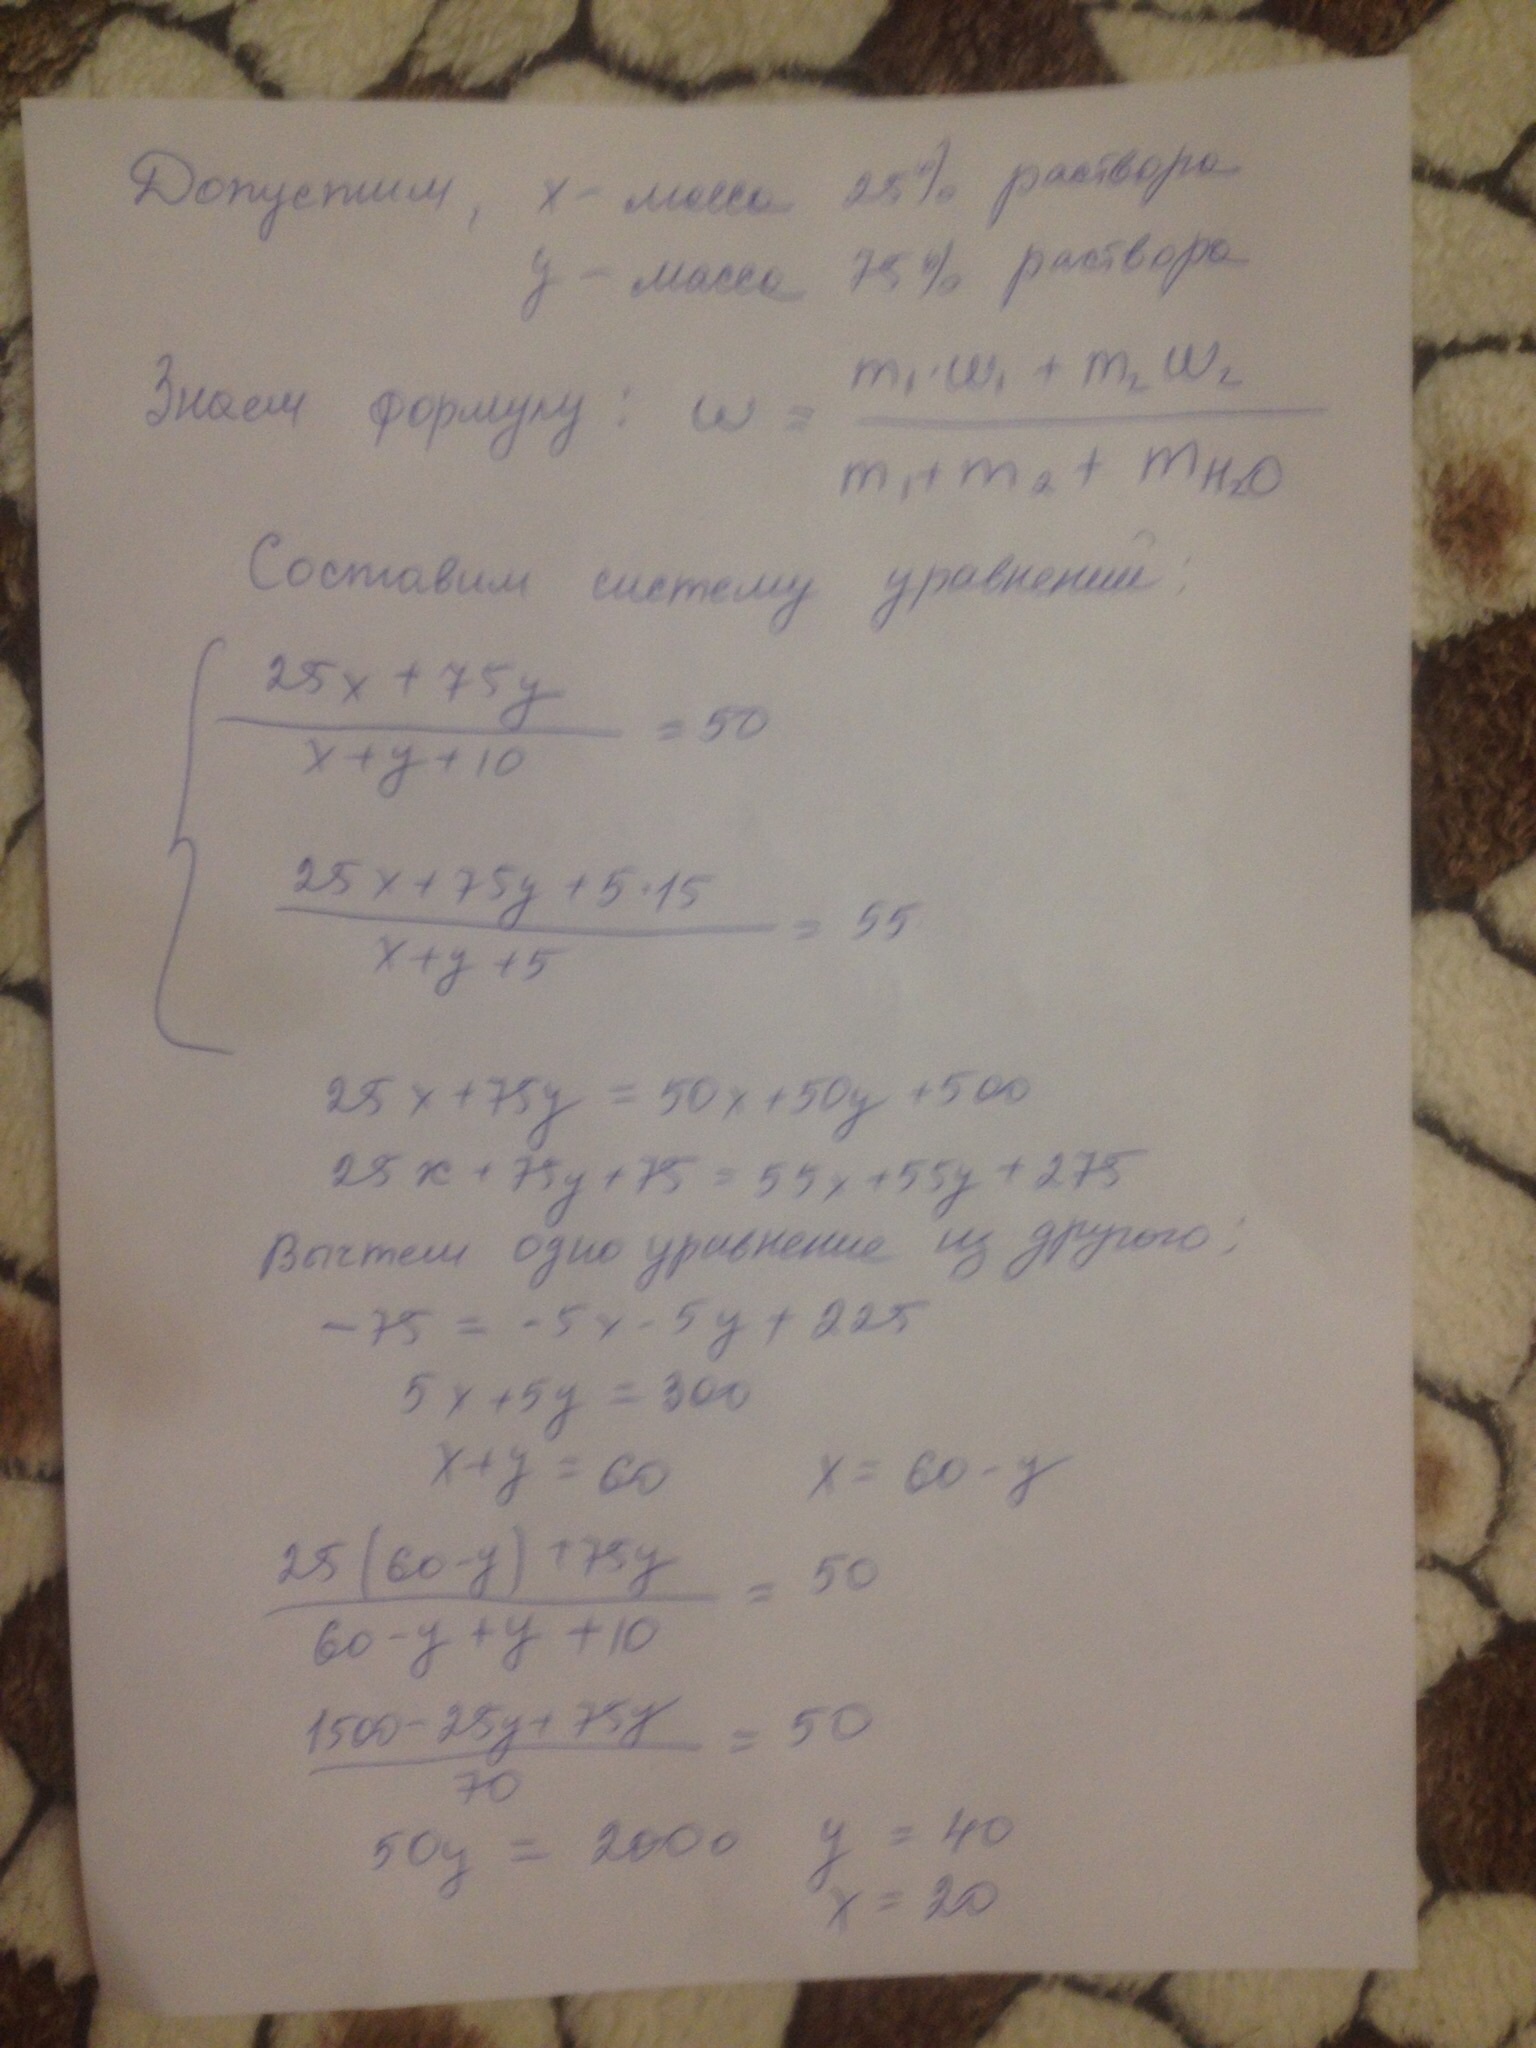 Допустим, x - масса 25% раствора
y - масса 75% раствора
Знаем формулу: ω = (m₁·ω₁ + m₂ω₂)/(m₁ + m₂ + mH₂O)
Составим систему уравнений:
(25x + 75y)/(x + y + 10) = 50
(25x + 75y + 5·15)/(x + y + 5) = 55
25x + 75y = 50x + 50y + 500
25x + 75y + 75 = 55x + 55y + 275
Вычтем одно уравнение из другого:
-75 = -5x - 5y + 225
5x + 5y = 300
x + y = 60 x = 60 - y
(25(60 - y) + 75y)/(60 - y + y + 10) = 50
(1500 - 25y + 75y)/70 = 50
50y = 2000 y = 40
x = 20